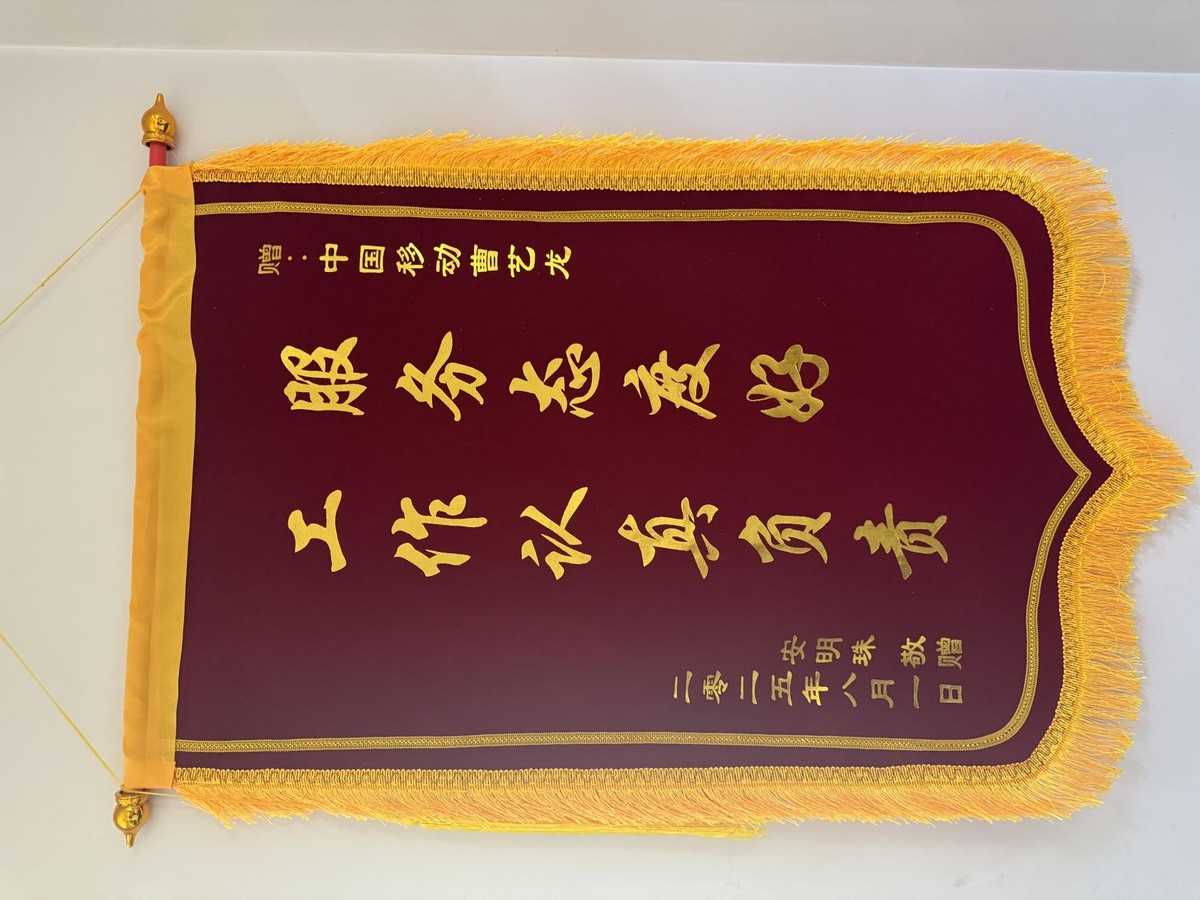 赠：中国移动曹艺龙
服务态度好
工作认真负责
安明珠 敬赠
二零二五年八月一日